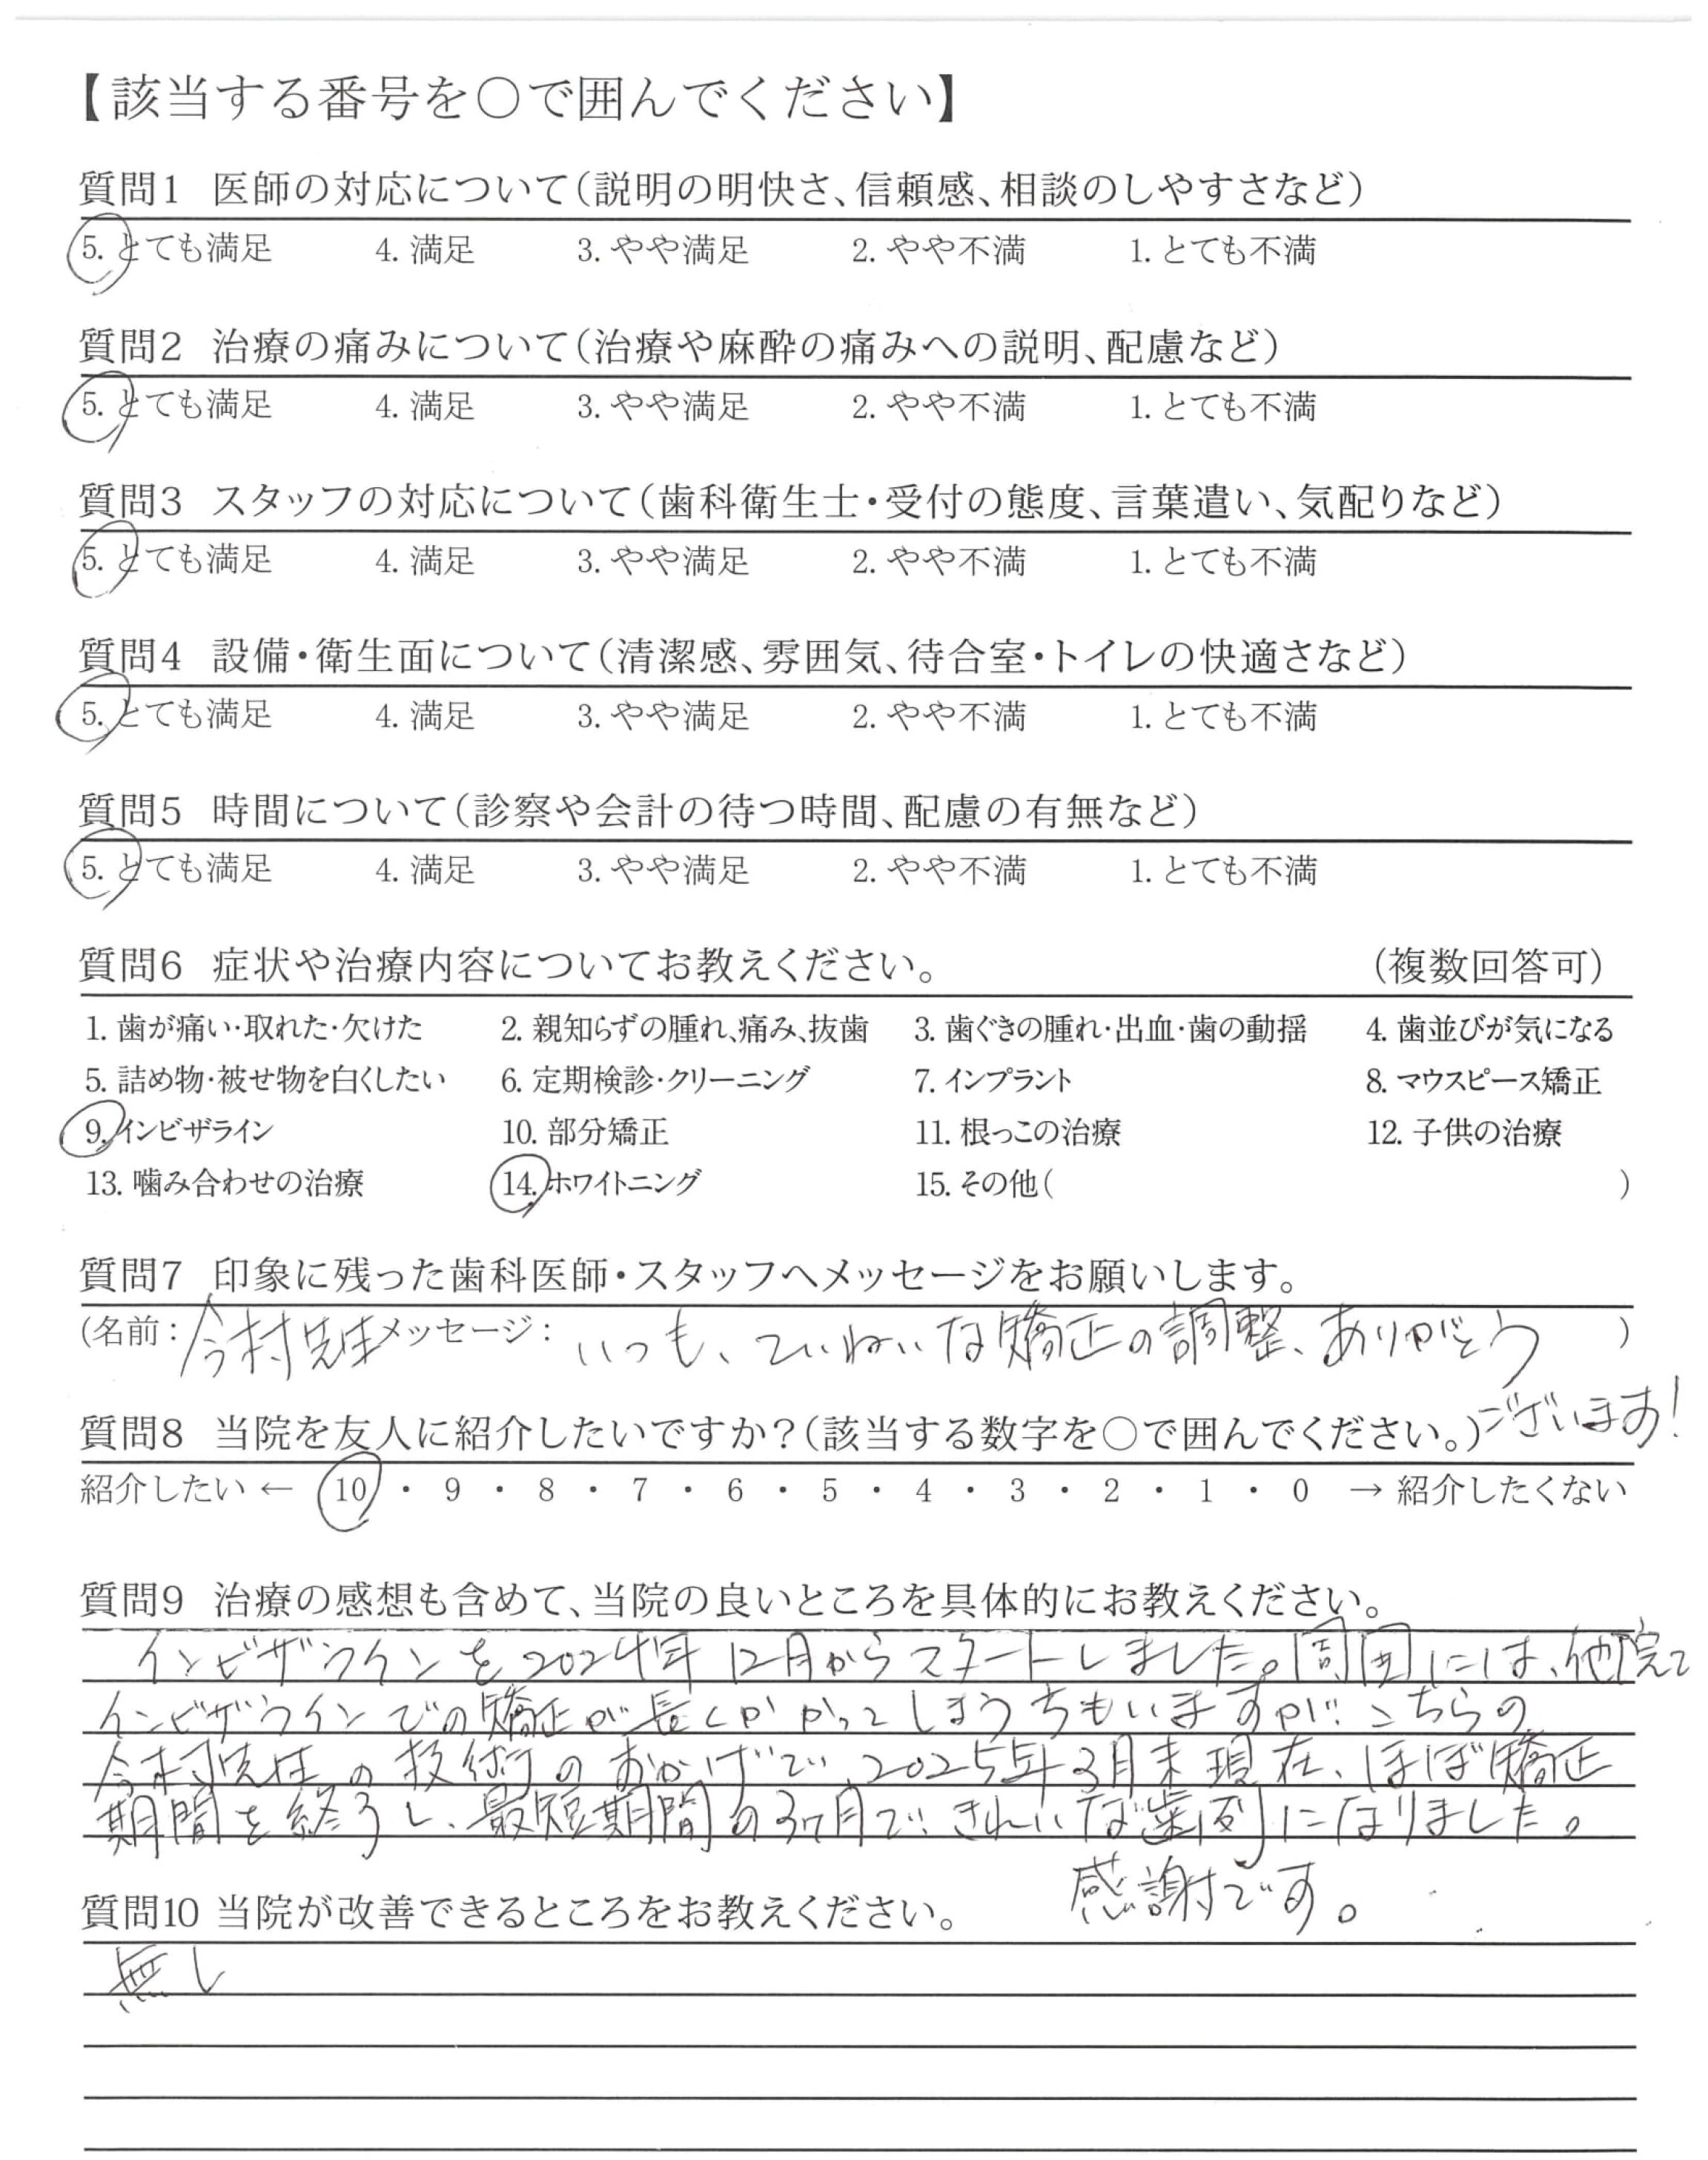 【該当する番号を〇で囲んでください】
質問1 医師の対応について(説明の明快さ、信頼感、相談のしやすさなど)
5. とても満足 4. 満足 3. やや満足 2. やや不満 1. とても不満
質問2 治療の痛みについて(治療や麻酔の痛みへの説明、配慮など)
5. とても満足 4. 満足 3. やや満足 2. やや不満 1. とても不満
質問3 スタッフの対応について(歯科衛生士・受付の態度、言葉遣い、気配りなど)
5. とても満足 4. 満足 3. やや満足 2. やや不満 1. とても不満
質問4 設備・衛生面について(清潔感、雰囲気、待合室・トイレの快適さなど)
5. とても満足 4. 満足 3. やや満足 2. やや不満 1. とても不満
質問5 時間について(診察や会計の待つ時間、配慮の有無など)
5. とても満足 4. 満足 3. やや満足 2. やや不満 1. とても不満
質問6 症状や治療内容についてお教えください。 (複数回答可)
1. 歯が痛い・取れた・欠けた 2. 親知らずの腫れ、痛み、抜歯 3. 歯ぐきの腫れ・出血・歯の動揺 4. 歯並びが気になる
5. 詰め物・被せ物を白くしたい 6. 定期検診・クリーニング 7. インプラント 8. マウスピース矯正
9. インビザライン 10. 部分矯正 11. 根っこの治療 12. 子供の治療
13. 噛み合わせの治療 14. ホワイトニング 15. その他( )
質問7 印象に残った歯科医師・スタッフへメッセージをお願いします。
(名前: 今村先生 メッセージ: いつも、ていねいな矯正の調整、ありがとう )
ございます!
質問8 当院を友人に紹介したいですか?(該当する数字を〇で囲んでください。)
紹介したい ← 10 ・ 9 ・ 8 ・ 7 ・ 6 ・ 5 ・ 4 ・ 3 ・ 2 ・ 1 ・ 0 → 紹介したくない
質問9 治療の感想も含めて、当院の良いところを具体的にお教えください。
インビザラインを2024年12月からスタートしました。周囲には、他院で
インビザラインでの矯正が長くかかってしまうもいますが、こちらの
今村先生の技術のおかげで、2025年3月末現在、ほぼ矯正
期間を終了し、最短期間の3ヶ月で、きれいな歯列になりました。
感謝です。
質問10 当院が改善できるところをお教えください。
無し